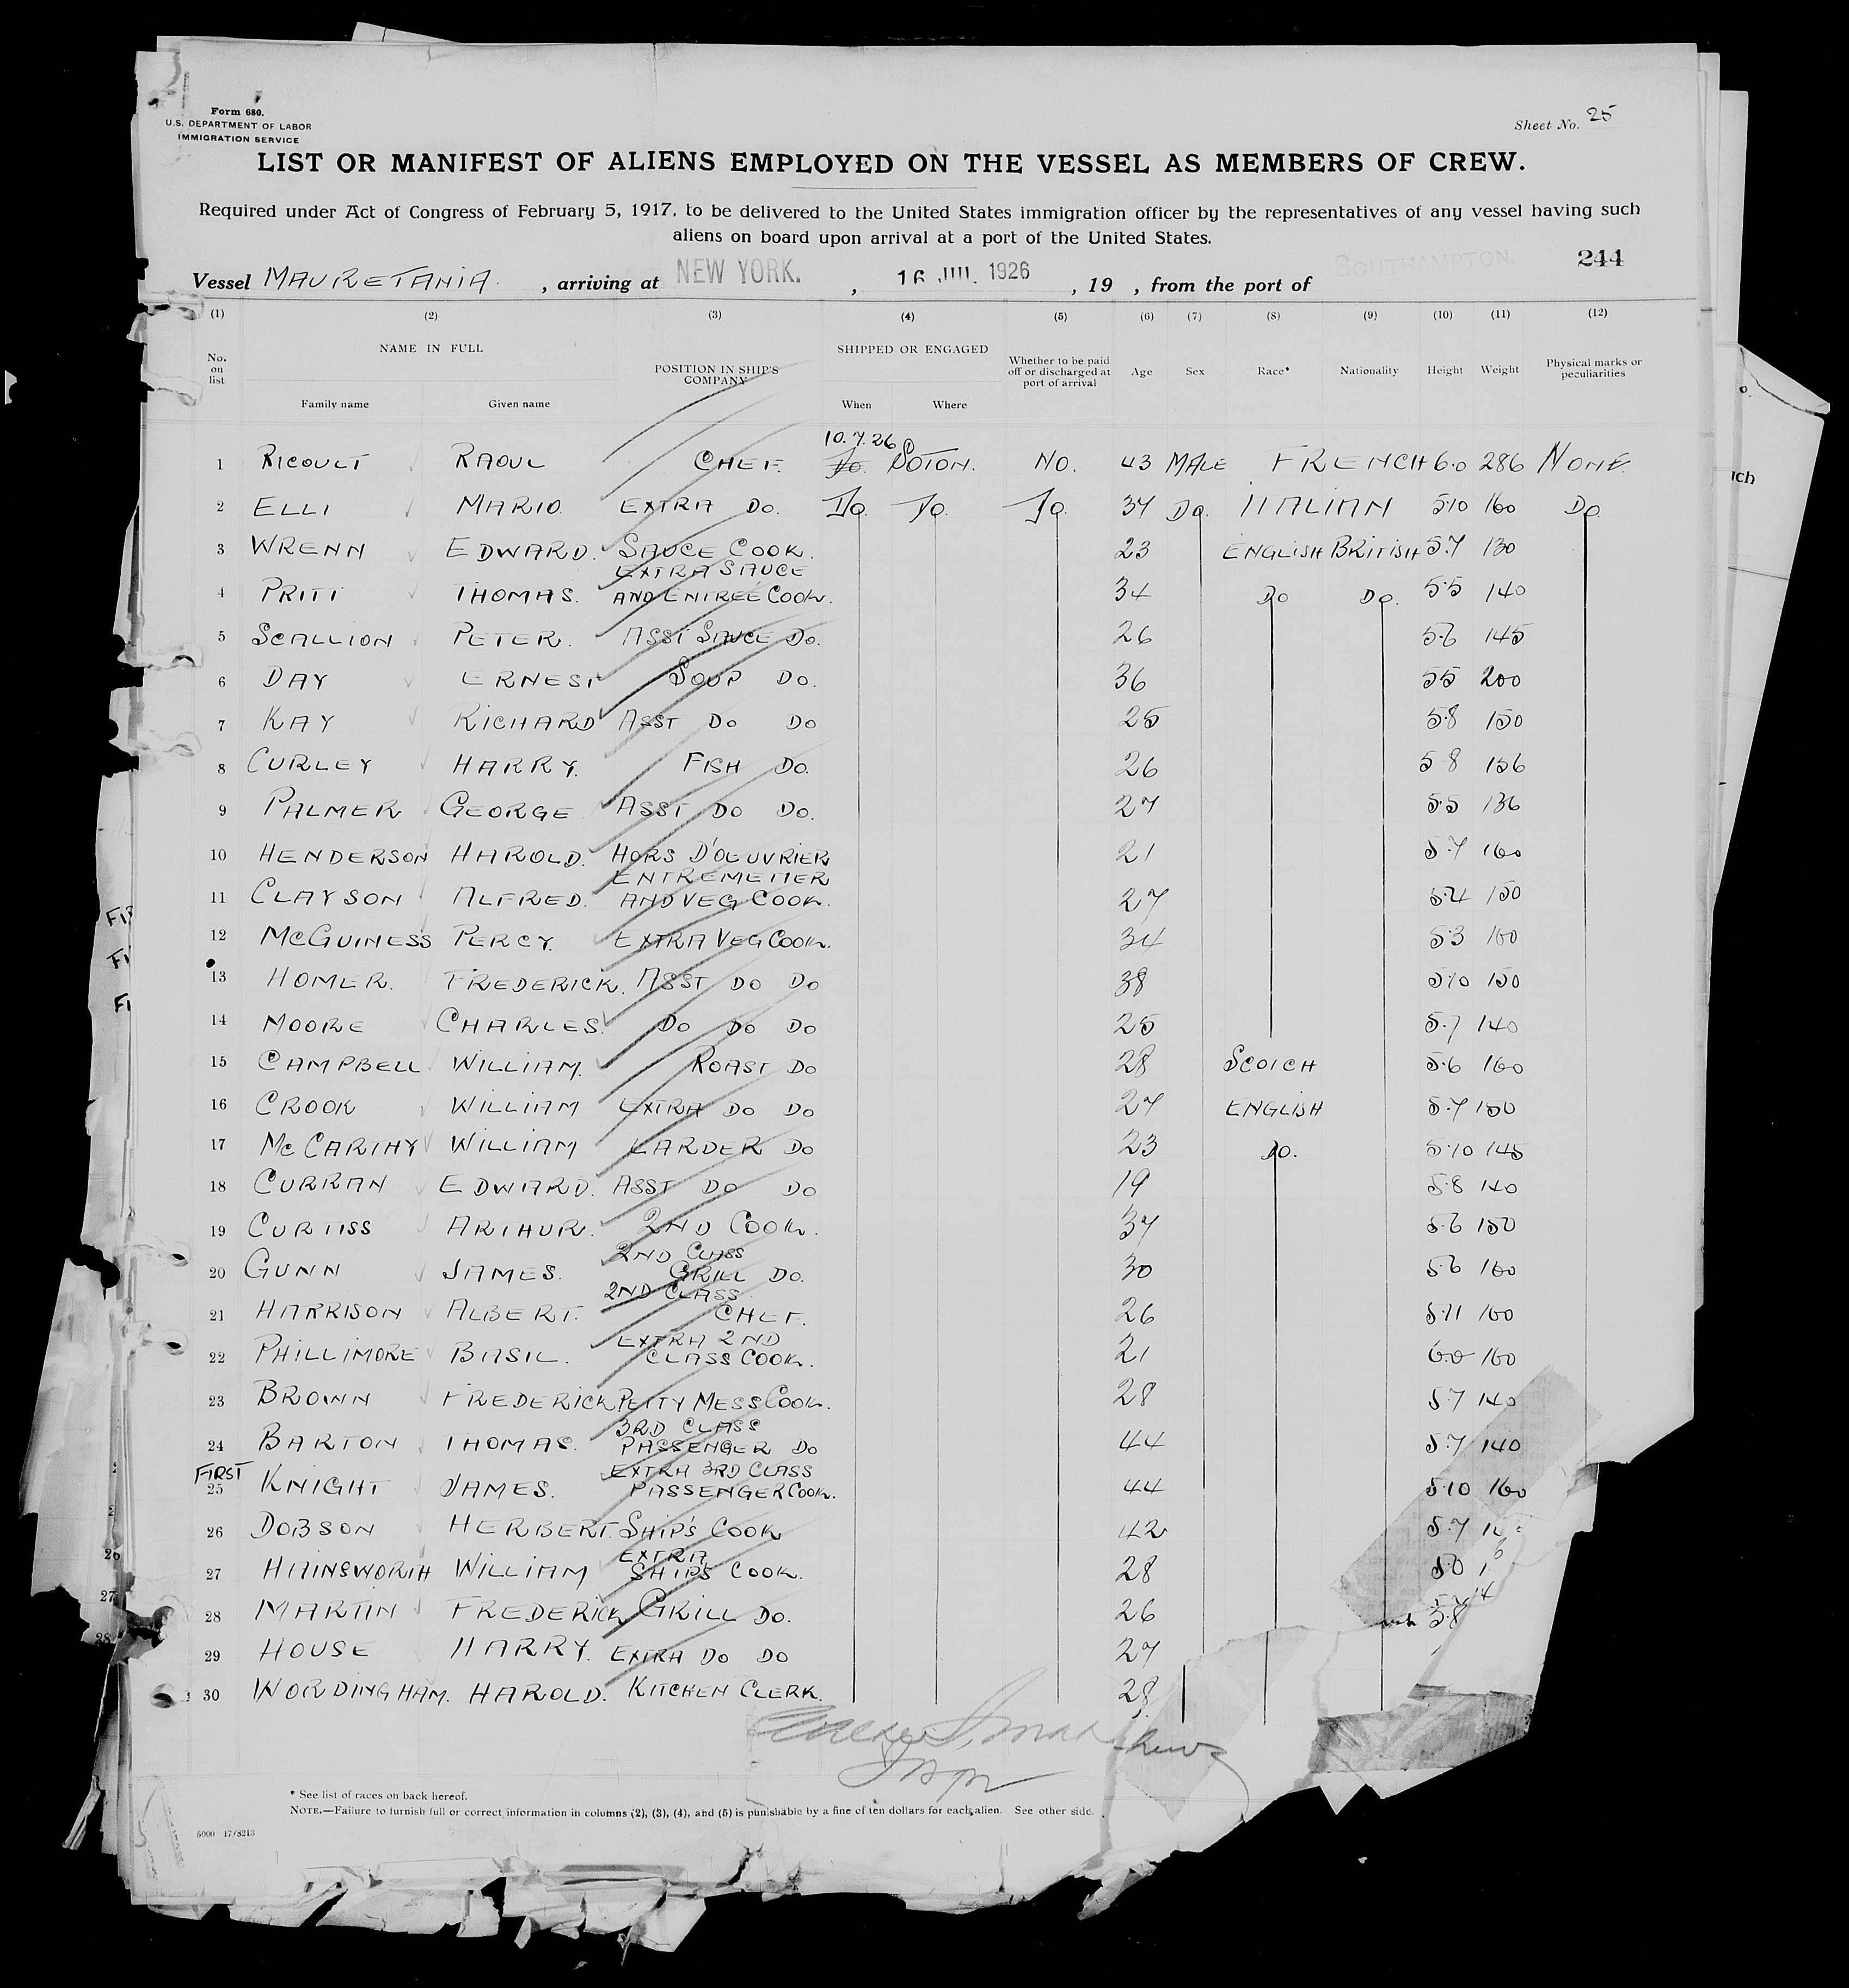 Form 680.
U.S. DEPARTMENT OF LABOR
IMMIGRATION SERVICE
Sheet No. 25
LIST OR MANIFEST OF ALIENS EMPLOYED ON THE VESSEL AS MEMBERS OF CREW.
Required under Act of Congress of February 5, 1917, to be delivered to the United States immigration officer by the representatives of any vessel having such
aliens on board upon arrival at a port of the United States.
244
Vessel MAURETANIA. , arriving at NEW YORK. , 16 JUL 1926 , 19 , from the port of SOUTHAMPTON.
(1) (2) (3) (4) (5) (6) (7) (8) (9) (10) (11) (12)
No. on list NAME IN FULL POSITION IN SHIP'S COMPANY SHIPPED OR ENGAGED Whether to be paid off or discharged at port of arrival Age Sex Race* Nationality Height Weight Physical marks or peculiarities
Family name Given name When Where
10.7.26
1 RICOULT RAOUL CHEF. Do. SOTON. NO. 43 MALE FRENCH 6.0 286 NONE.
2 ELLI MARIO. EXTRA DO. Do. Do. Do. 37 DO. ITALIAN 5.10 160 DO
3 WRENN EDWARD. SAUCE COOK. 23 ENGLISH BRITISH 5.7 130
4 PRITT THOMAS. EXTRA SAUCE AND ENTREÉ COOK. 34 DO DO. 5.5 140
5 SCALLION PETER. ASST SAUCE DO. 26 5.6 145
6 DAY ERNEST SOUP DO. 36 5.5 200
7 KAY RICHARD ASST DO DO 25 5.8 150
8 CURLEY HARRY. FISH DO. 26 5 8 156
9 PALMER GEORGE ASST DO DO. 27 5.5 136
10 HENDERSON HAROLD. HORS D'OEUVRIER 21 5.7 160
11 CLAYSON ALFRED. ENTREMETIER AND VEG COOK. 27 5.4 150
12 McGUINESS PERCY. EXTRA VEG COOK. 34 5.3 160
13 HOMER. FREDERICK. ASST DO DO 38 5.10 150
14 MOORE CHARLES. DO DO DO 25 5.7 140
15 CAMPBELL WILLIAM. ROAST DO 28 SCOTCH 5.6 160
16 CROOK WILLIAM EXTRA DO DO 27 ENGLISH 5.7 150
17 McCARTHY WILLIAM LARDER DO 23 DO. 5.10 145
18 CURRAN EDWARD. ASST DO DO 19 5.8 140
19 CURTISS ARTHUR. 2ND COOK. 37 5.6 150
20 GUNN JAMES. 2ND CLASS GRILL DO. 30 5.6 160
21 HARRISON ALBERT. 2ND CLASS CHEF. 26 5.11 160
22 PHILLIMORE BASIL. EXTRA 2ND CLASS COOK. 21 6.0 160
23 BROWN FREDERICK PETTY MESS COOK. 28 5.7 140
24 BARTON THOMAS. 3RD CLASS PASSENGER DO 44 5.7 140
FIRST
25 KNIGHT JAMES. EXTRA 3RD CLASS PASSENGER COOK. 44 5.10 160
26 DOBSON HERBERT. SHIP'S COOK 42 5.7
27 HAINSWORTH WILLIAM EXTRA SHIPS COOK. 28
28 MARTIN FREDERICK GRILL DO. 26 5.8
29 HOUSE HARRY. EXTRA DO DO 27
30 WORDINGHAM. HAROLD. KITCHEN CLERK. 28
* See list of races on back hereof.
NOTE.—Failure to furnish full or correct information in columns (2), (3), (4), and (5) is punishable by a fine of ten dollars for each alien. See other side.